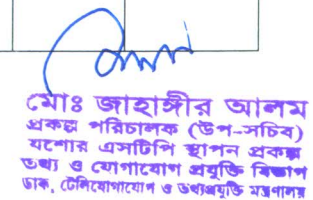 মোঃ জাহাঙ্গীর আলম
প্রকল্প পরিচালক (উপ-সচিব)
যশোর এসটিপি স্থাপন প্রকল্প
তথ্য ও যোগাযোগ প্রযুক্তি বিভাগ
ডাক, টেলিযোগাযোগ ও তথ্যপ্রযুক্তি মন্ত্রণালয়